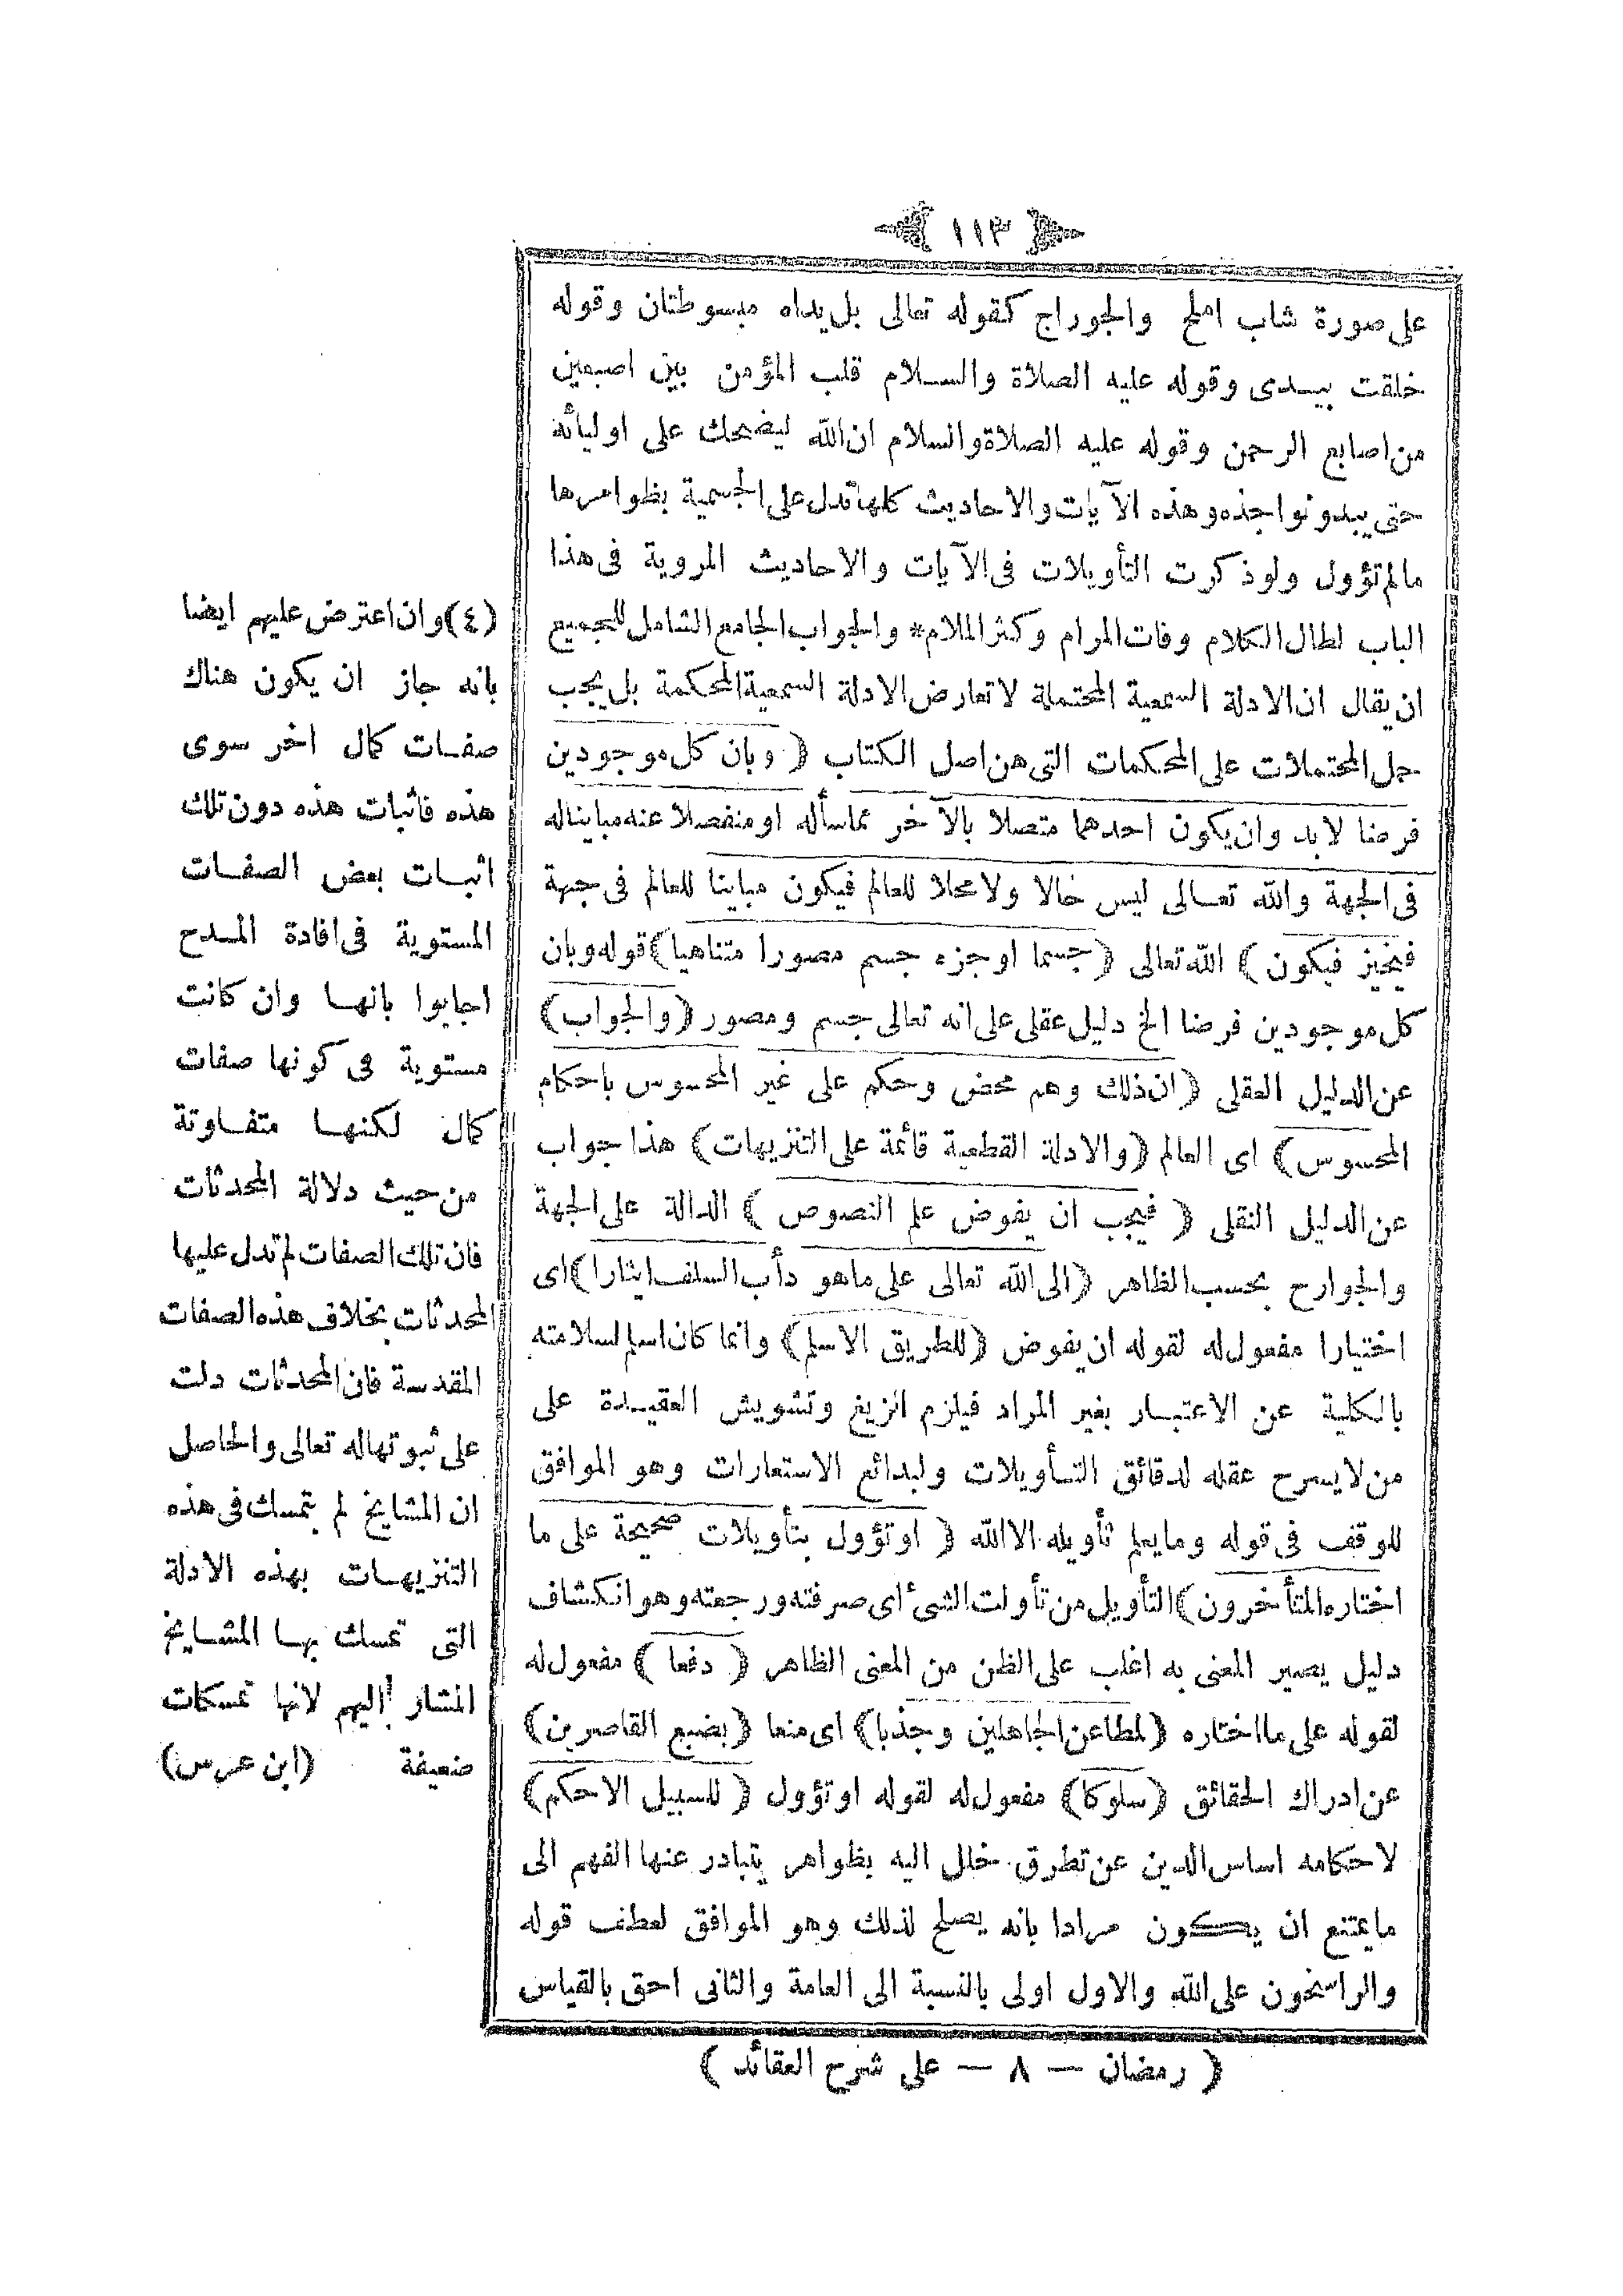 ١١٣
على صورة شاب املح والجوراح كقوله تعالى بل يداه مبسوطتان وقوله
خلقت بيدى وقوله عليه الصلاة والسلام قلب المؤمن بين اصبعين
من اصابع الرحمن وقوله عليه الصلاة والسلام ان الله ليضحك على اوليائه
حتى يبدو نواجذه وهذه الآيات والاحاديث كلها تدل على الجسمية بظواهرها
مالم تؤول ولو ذكرت التأويلات فى الآيات والاحاديث المروية فى هذا
الباب لطال الكلام وفات المرام وكثر الملام * والجواب الجامع الشامل للجميع
ان يقال ان الادلة السمعية المحتملة لا تعارض الادلة السمعية المحكمة بل يجب
حمل المحتملات على المحكمات التى هن اصل الكتاب ( وبان كل موجودين
فرضا لا بد وان يكون احدهما متصلا بالآخر مماسا له او منفصلا عنه مباينا له
فى الجهة والله تعالى ليس حالا ولا محلا للعالم فيكون مباينا للعالم فى جهة
فيتحيز فيكون ) الله تعالى ( جسما او جزء جسم مصورا متناهيا ) قوله وبان
كل موجودين فرضا الخ دليل عقلى على انه تعالى جسم ومصور ( والجواب )
عن الدليل العقلى ( ان ذلك وهم محض وحكم على غير المحسوس باحكام
المحسوس ) اى العالم ( والادلة القطعية قائمة على التنزيهات ) هذا جواب
عن الدليل النقلى ( فيجب ان يفوض علم النصوص ) الدالة على الجهة
والجوارح بحسب الظاهر ( الى الله تعالى على ما هو دأب السلف ايثارا ) اى
اختيارا مفعول له لقوله ان يفوض ( للطريق الاسلم ) وانما كان اسلم لسلامته
بالكلية عن الاعتبار بغير المراد فيلزم الزيغ وتشويش العقيدة على
من لا يسرح عقله لدقائق التأويلات ولبدائع الاستعارات وهو الموافق
للوقف فى قوله وما يعلم تأويله الا الله ( او تؤول بتأويلات صحيحة على ما
اختاره المتأخرون ) التأويل من تأولت الشئ اى صرفته ورجعته وهو انكشاف
دليل يصير المعنى به اغلب على الظن من المعنى الظاهر ( دفعا ) مفعول له
لقوله على ما اختاره ( لمطاعن الجاهلين وجذبا ) اى منعا ( بضبع القاصرين )
عن ادراك الحقائق ( سلوكا ) مفعول له لقوله او تؤول ( للسبيل الاحكم )
لاحكامه اساس الدين عن تطرق خلل اليه بظواهر يتبادر عنها الفهم الى
ما يمتنع ان يكون مرادا بانه يصلح لذلك وهو الموافق لعطف قوله
والراسخون على الله والاول اولى بالنسبة الى العامة والثانى احق بالقياس
( رمضان — ٨ — على شرح العقائد )
(٤) وان اعترض عليهم ايضا
بانه جاز ان يكون هناك
صفات كمال اخر سوى
هذه فاثبات هذه دون تلك
اثبات بعض الصفات
المستوية فى افادة المدح
اجابوا بانها وان كانت
مستوية فى كونها صفات
كمال لكنها متفاوتة
من حيث دلالة المحدثات
فان تلك الصفات لم تدل عليها
المحدثات بخلاف هذه الصفات
المقدسة فان المحدثات دلت
على ثبوتها له تعالى والحاصل
ان المشايخ لم يتمسك فى هذه
التنزيهات بهذه الادلة
التى تمسك بها المشايخ
المشار اليهم لانها تمسكات
ضعيفة (ابن عرس)